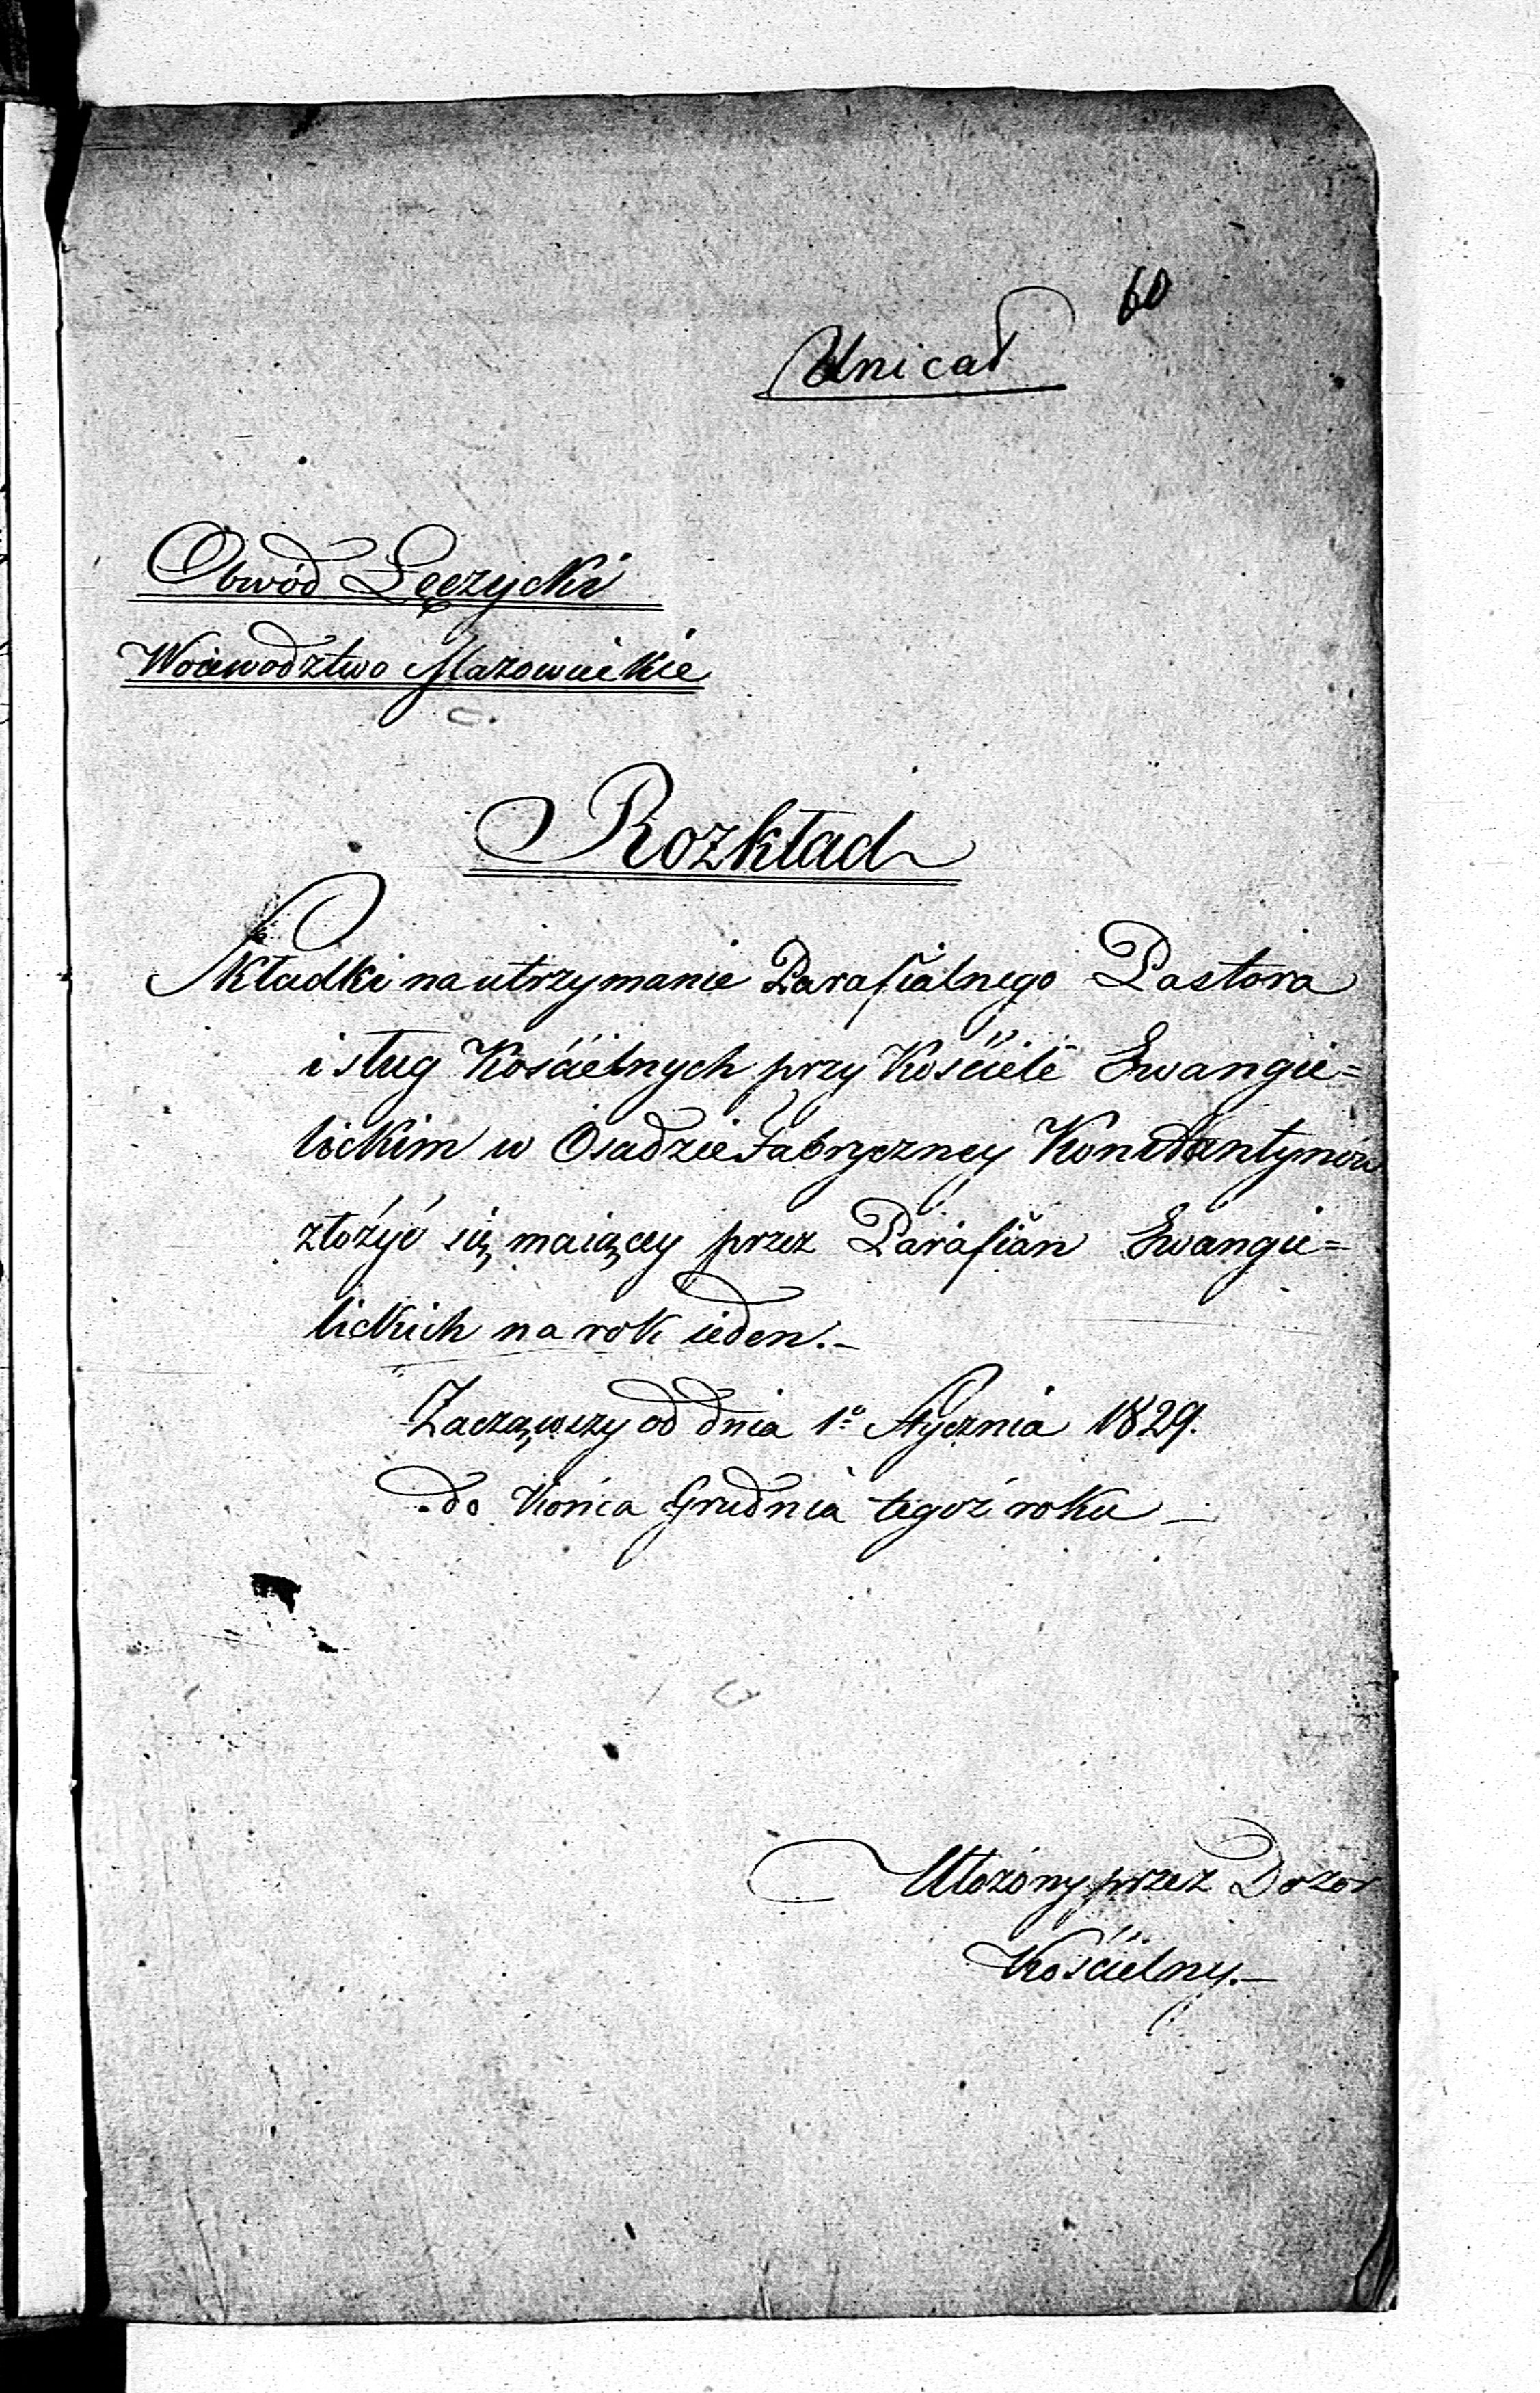 60
Unicat
Obwód Łęczycki
Woiewodztwo Mazowieckie
Rozkład
Składki na utrzymanie Parafialnego Pastora
i sług Kościelnych przy Kościele Ewangie=
lickim w Osadzie Fabryczney Konstantynów
złożyć się maiącey przez Parafian Ewangie=
lickich na rok ieden.-
Zacząwszy od dnia 1º Stycznia 1829.
do końca Grudnia tegoż roku -
Ułożony przez Dozor
Kościelny.-